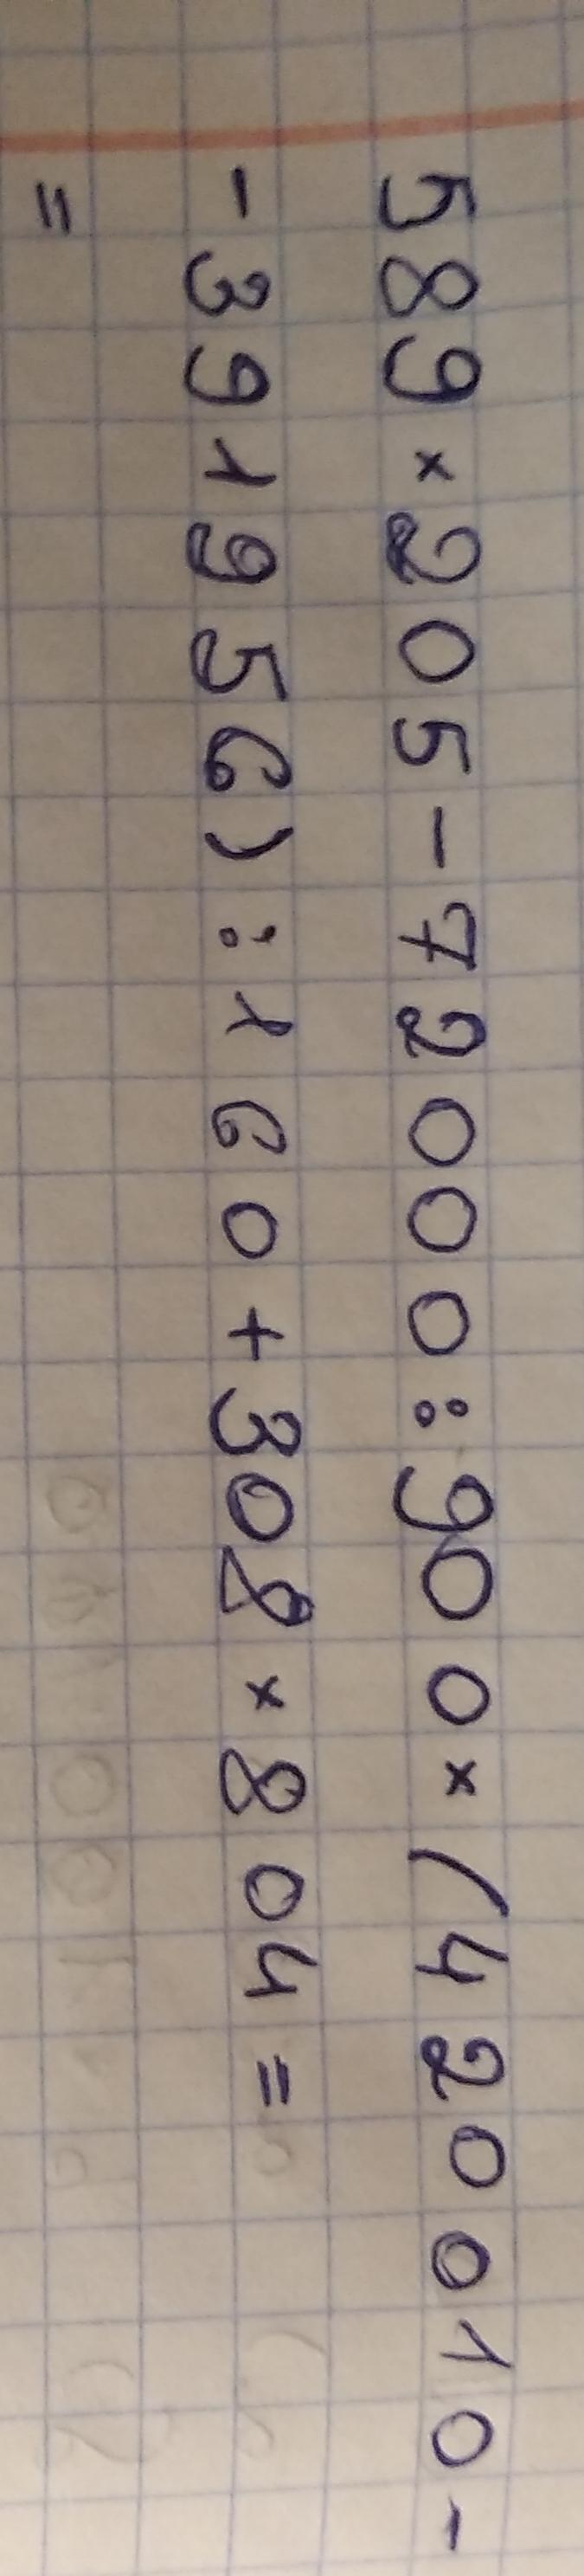 589×205-72000:900×(420010-
-391956):160+308×804=
=